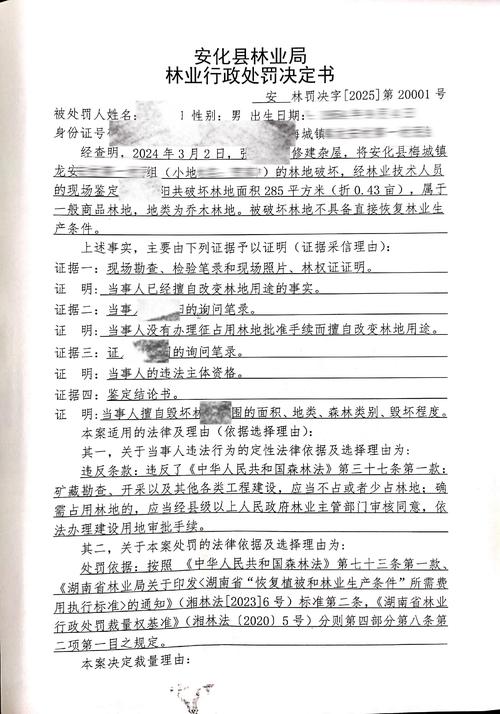 安化县林业局
林业行政处罚决定书
安 林罚决字[2025]第 20001 号
被处罚人姓名: 性别: 男 出生日期:
身份证号 梅城镇
经查明, 2024 年 3 月 2 日, 张 修建杂屋, 将安化县梅城镇
龙安 组(小地 )的林地破坏, 经林业技术人员
的现场鉴定 阳共破坏林地面积 285 平方米(折 0.43 亩), 属于
一般商品林地, 地类为乔木林地。被破坏林地不具备直接恢复林业生
产条件。
上述事实, 主要由下列证据予以证明(证据采信理由):
证据一: 现场勘查、检验笔录和现场照片、林权证证明。
证 明: 当事人已经擅自改变林地用途的事实。
证据二: 当事 的询问笔录。
证 明: 当事人没有办理征占用林地批准手续而擅自改变林地用途。
证据三: 证 的询问笔录。
证 明: 当事人的违法主体资格。
证据四: 鉴定结论书。
证 明: 当事人擅自毁坏林 围的面积、地类、森林类别、毁坏程度。
本案适用的法律及理由(依据选择理由):
其一, 关于当事人违法行为的定性法律依据及选择理由为:
违反条款: 违反了《中华人民共和国森林法》第三十七条第一款:
矿藏勘查、开采以及其他各类工程建设, 应当不占或者少占林地; 确
需占用林地的, 应当经县级以上人民政府林业主管部门审核同意, 依
法办理建设用地审批手续。
其二, 关于本案处罚的法律依据及选择理由为:
处罚依据: 按照 《中华人民共和国森林法》第七十三条第一款、
《湖南省林业局关于印发<湖南省“恢复植被和林业生产条件”所需费
用执行标准>的通知》(湘林法[2023]6 号)标准第二条,《湖南省林业
行政处罚裁量权基准》(湘林法〔2020〕5 号)分则第四部分第八条第
二项第一目之规定。
本案决定裁量理由: